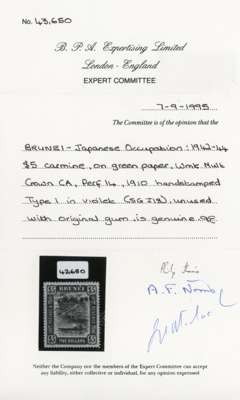 No. 43,650
B. P. A. Expertising Limited
London - England
EXPERT COMMITTEE
7-9-1995
The Committee is of the opinion that the
BRUNEI - Japanese Occupation : 1942-44
$5 carmine, on green paper, Wmk Mult
Crown CA, Perf 14, 1910 handstamped
Type 1 in violet (SG J18), unused
with original gum, is genuine.
43650
BRUNEI
FIVE DOLLARS
Neither the Company nor the members of the Expert Committee can accept
any liability, either collective or individual, for any opinion expressed